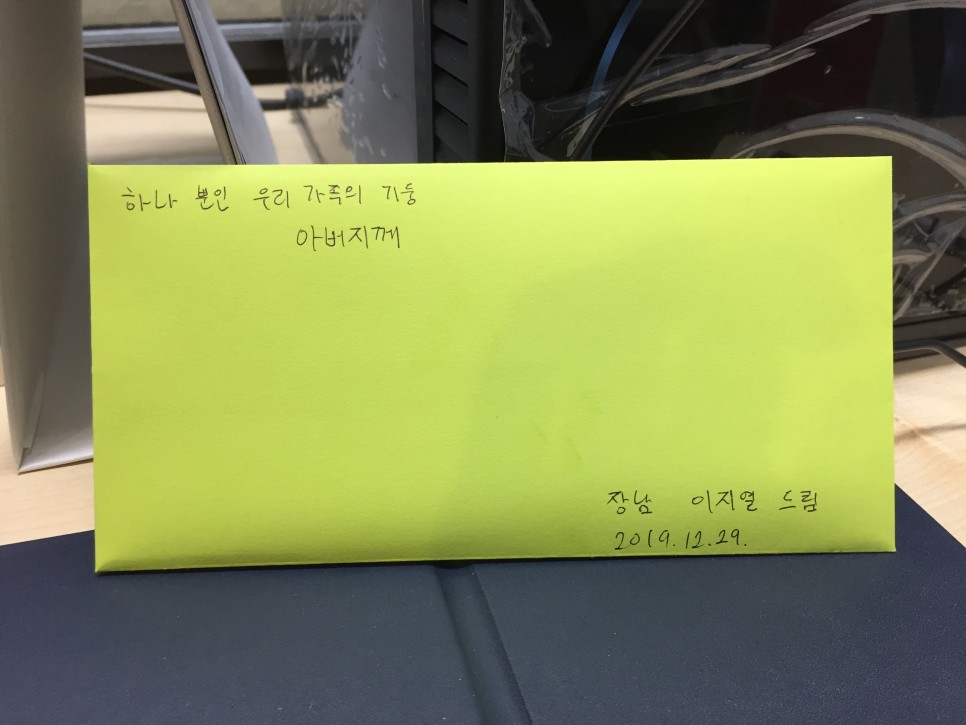 하나 뿐인 우리 가족의 기둥
아버지께
장남 이지열 드림
2019.12.29.